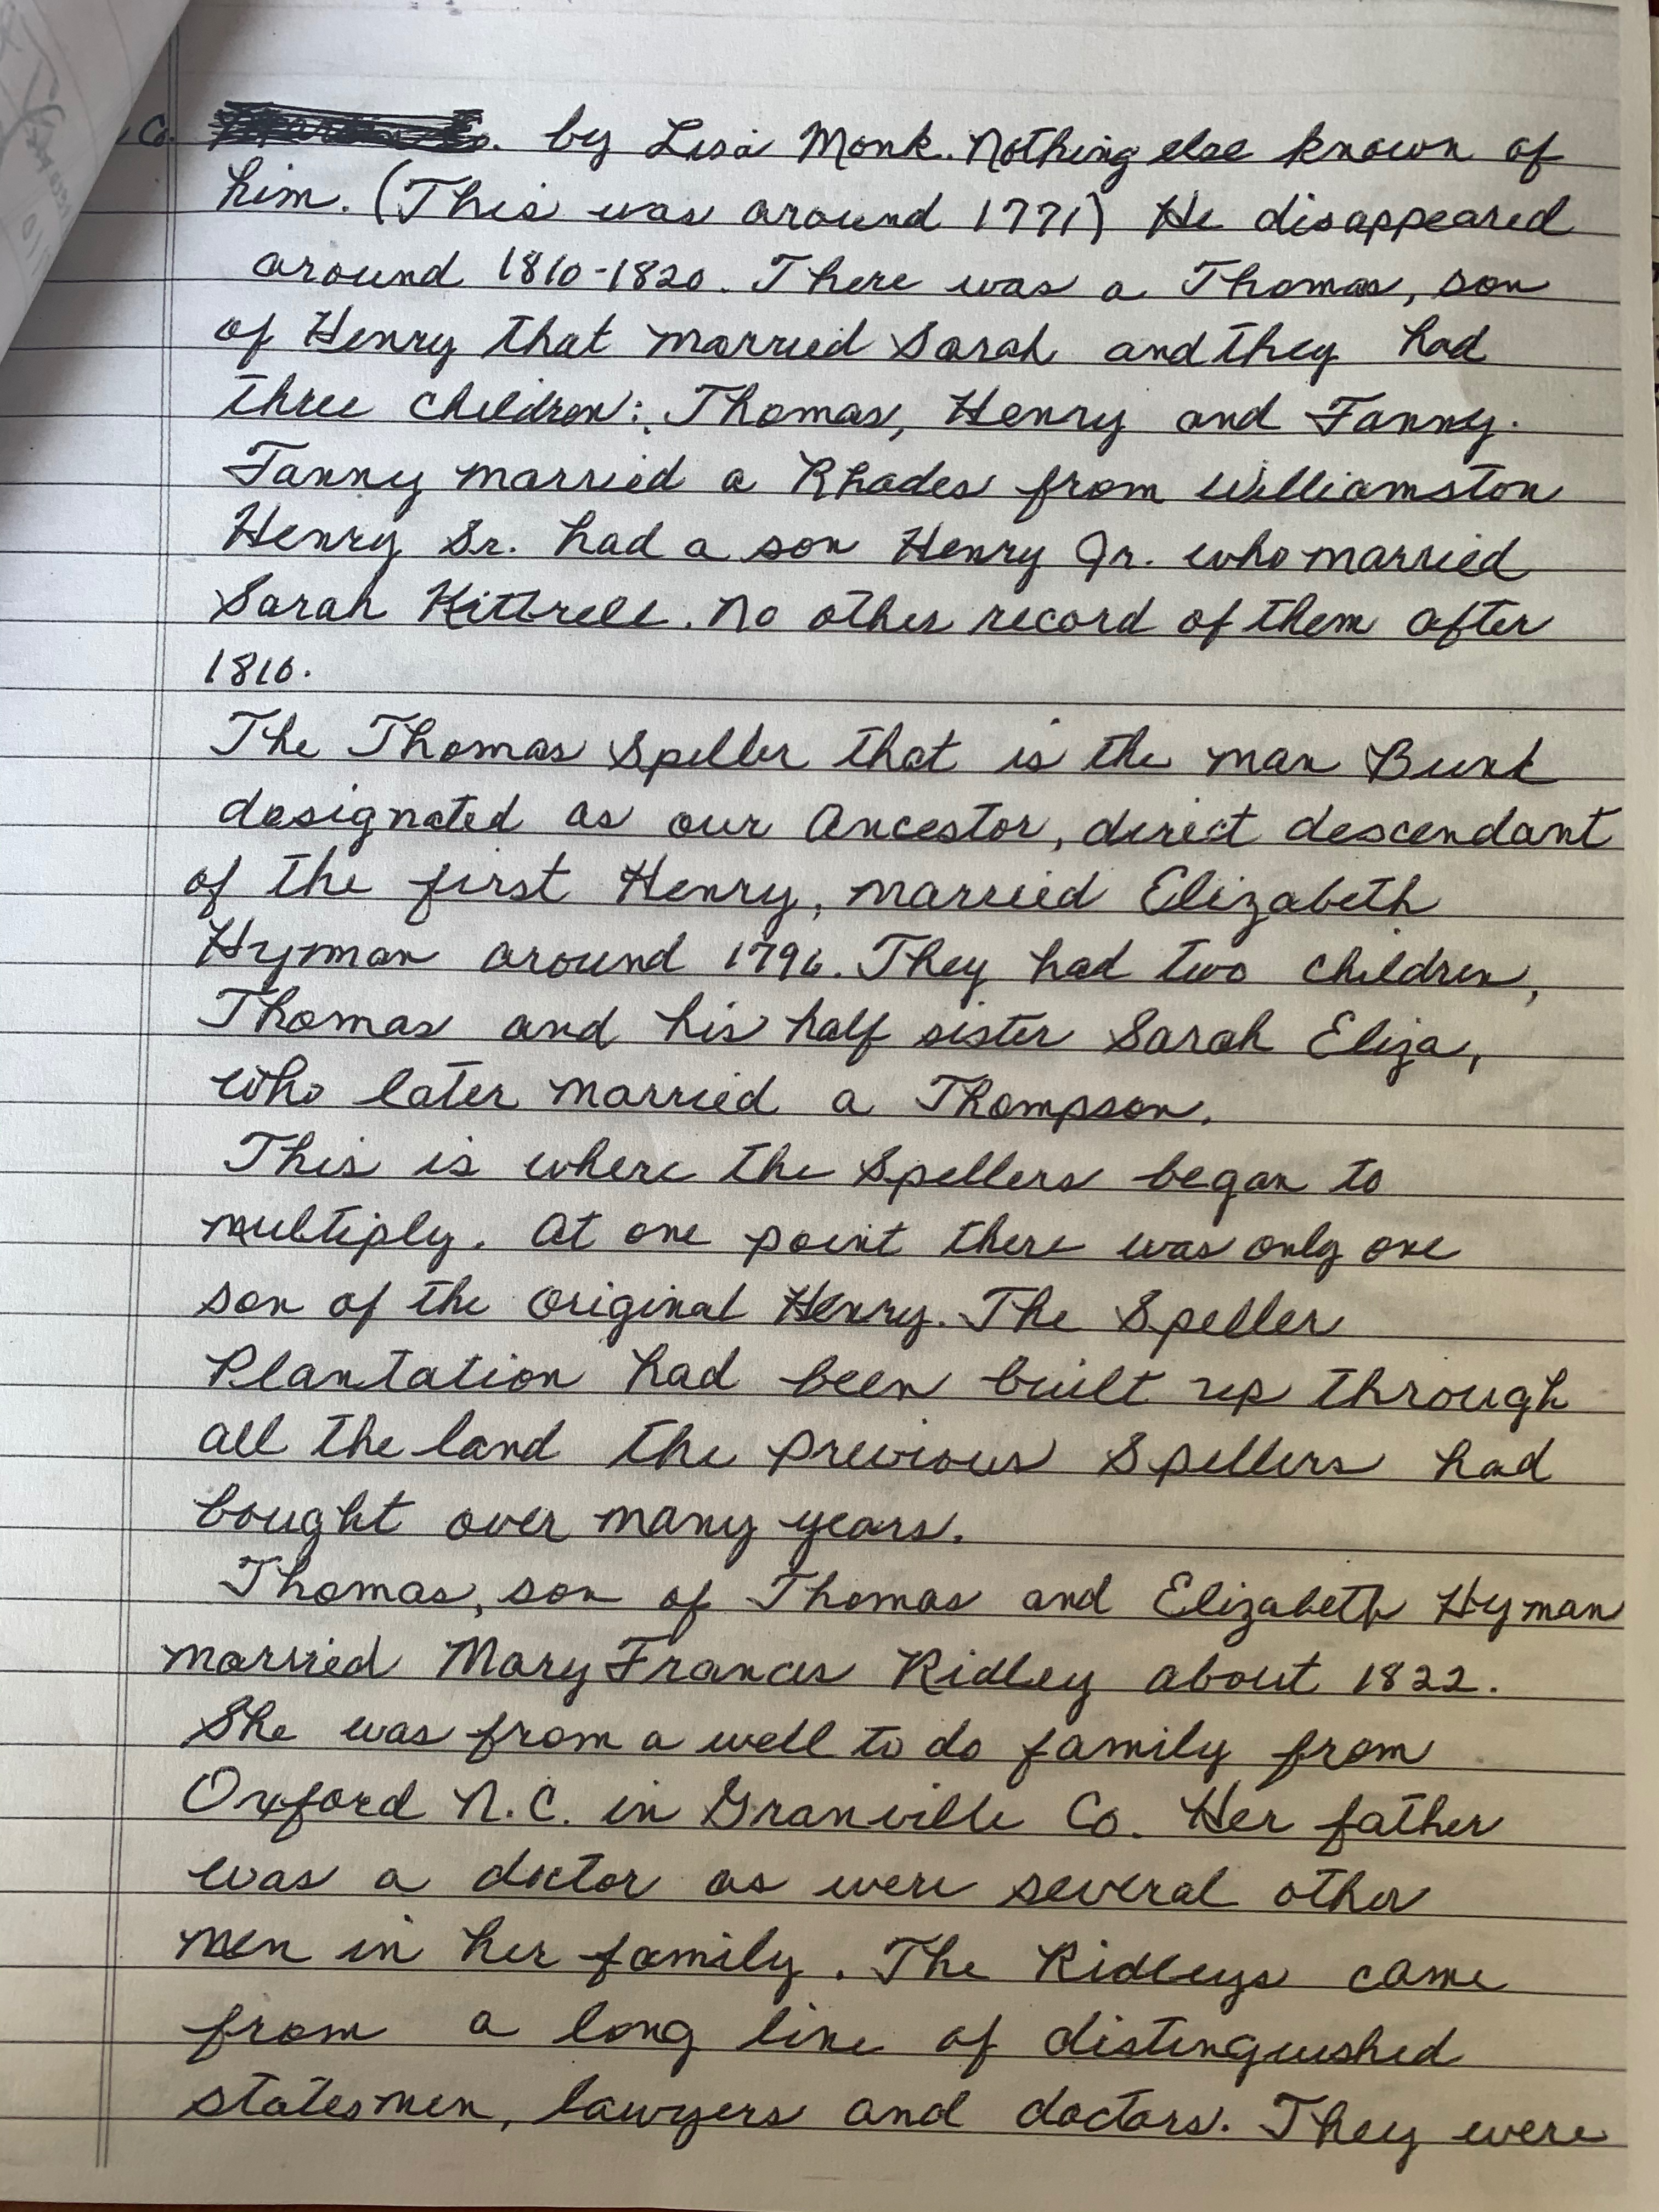 Co. by Lisa Monk. Nothing else known of
him. (This was around 1771) He disappeared
around 1810-1820. There was a Thomas, son
of Henry that married Sarah and they had
three children: Thomas, Henry and Fanny.
Fanny married a Rhades from Williamston
Henry Sr. had a son Henry Jr. who married
Sarah Kittrell. No other record of them after
1810.
The Thomas Speller that is the man Bunk
designated as our Ancestor, direct descendant
of the first Henry, married Elizabeth
Hyman around 1796. They had two children,
Thomas and his half sister Sarah Eliza,
who later married a Thompson.
This is where the Spellers began to
multiply. At one point there was only one
son of the original Henry. The Speller
Plantation had been built up through
all the land the previous Spellers had
bought over many years.
Thomas, son of Thomas and Elizabeth Hyman
married Mary Frances Ridley about 1822.
She was from a well to do family from
Oxford N.C. in Granville Co. Her father
was a doctor as were several other
men in her family. The Ridleys came
from a long line of distinguished
statesmen, lawyers and doctors. They were